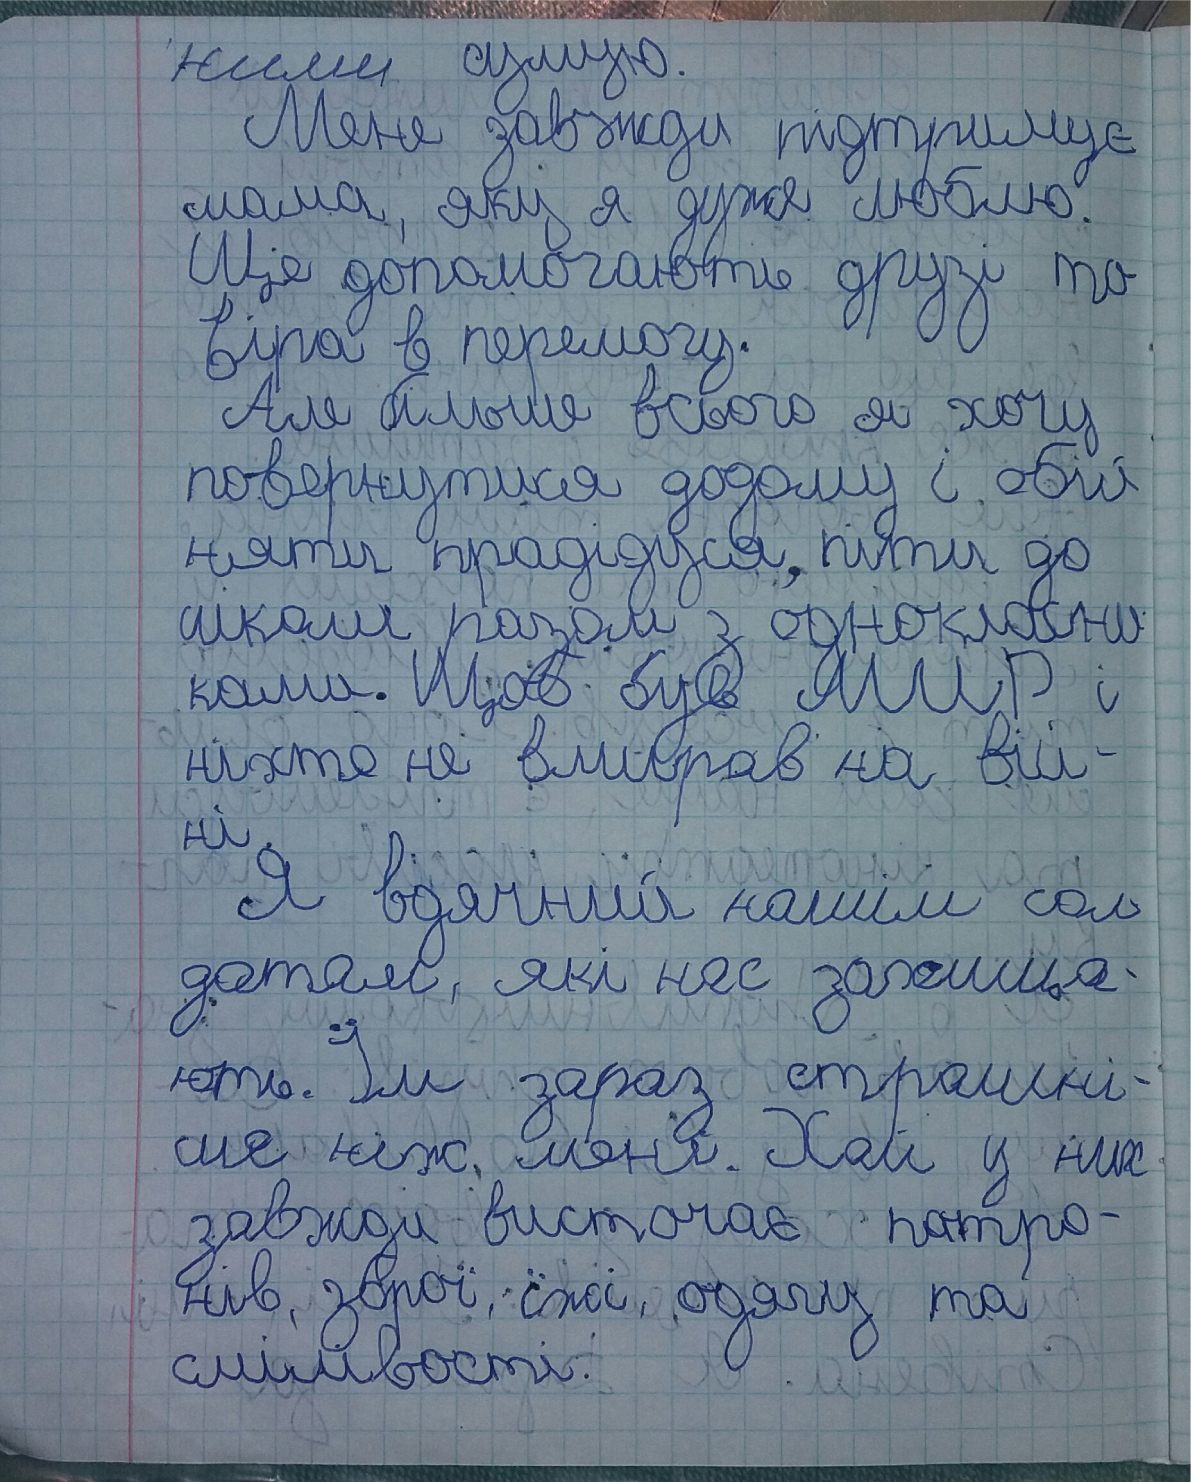 ними сумую.
Мене завжди підтримує
мама, яку я дуже люблю.
Ще допомогають друзі та
віра в перемогу.
Але більше всього я хочу
повернутися додому і обій
няти прадідуся, піти до
школи разом з однокласни
ками. Щоб був МИР і
ніхто не вмирав на вій-
ні.
Я вдячний нашім сол
датам, які нас захища-
ють. Їм зараз страшні-
ше ніж мені. Хай у них
завжди висточає патро-
нів, зброї, їжі, одягу та
смілівості.